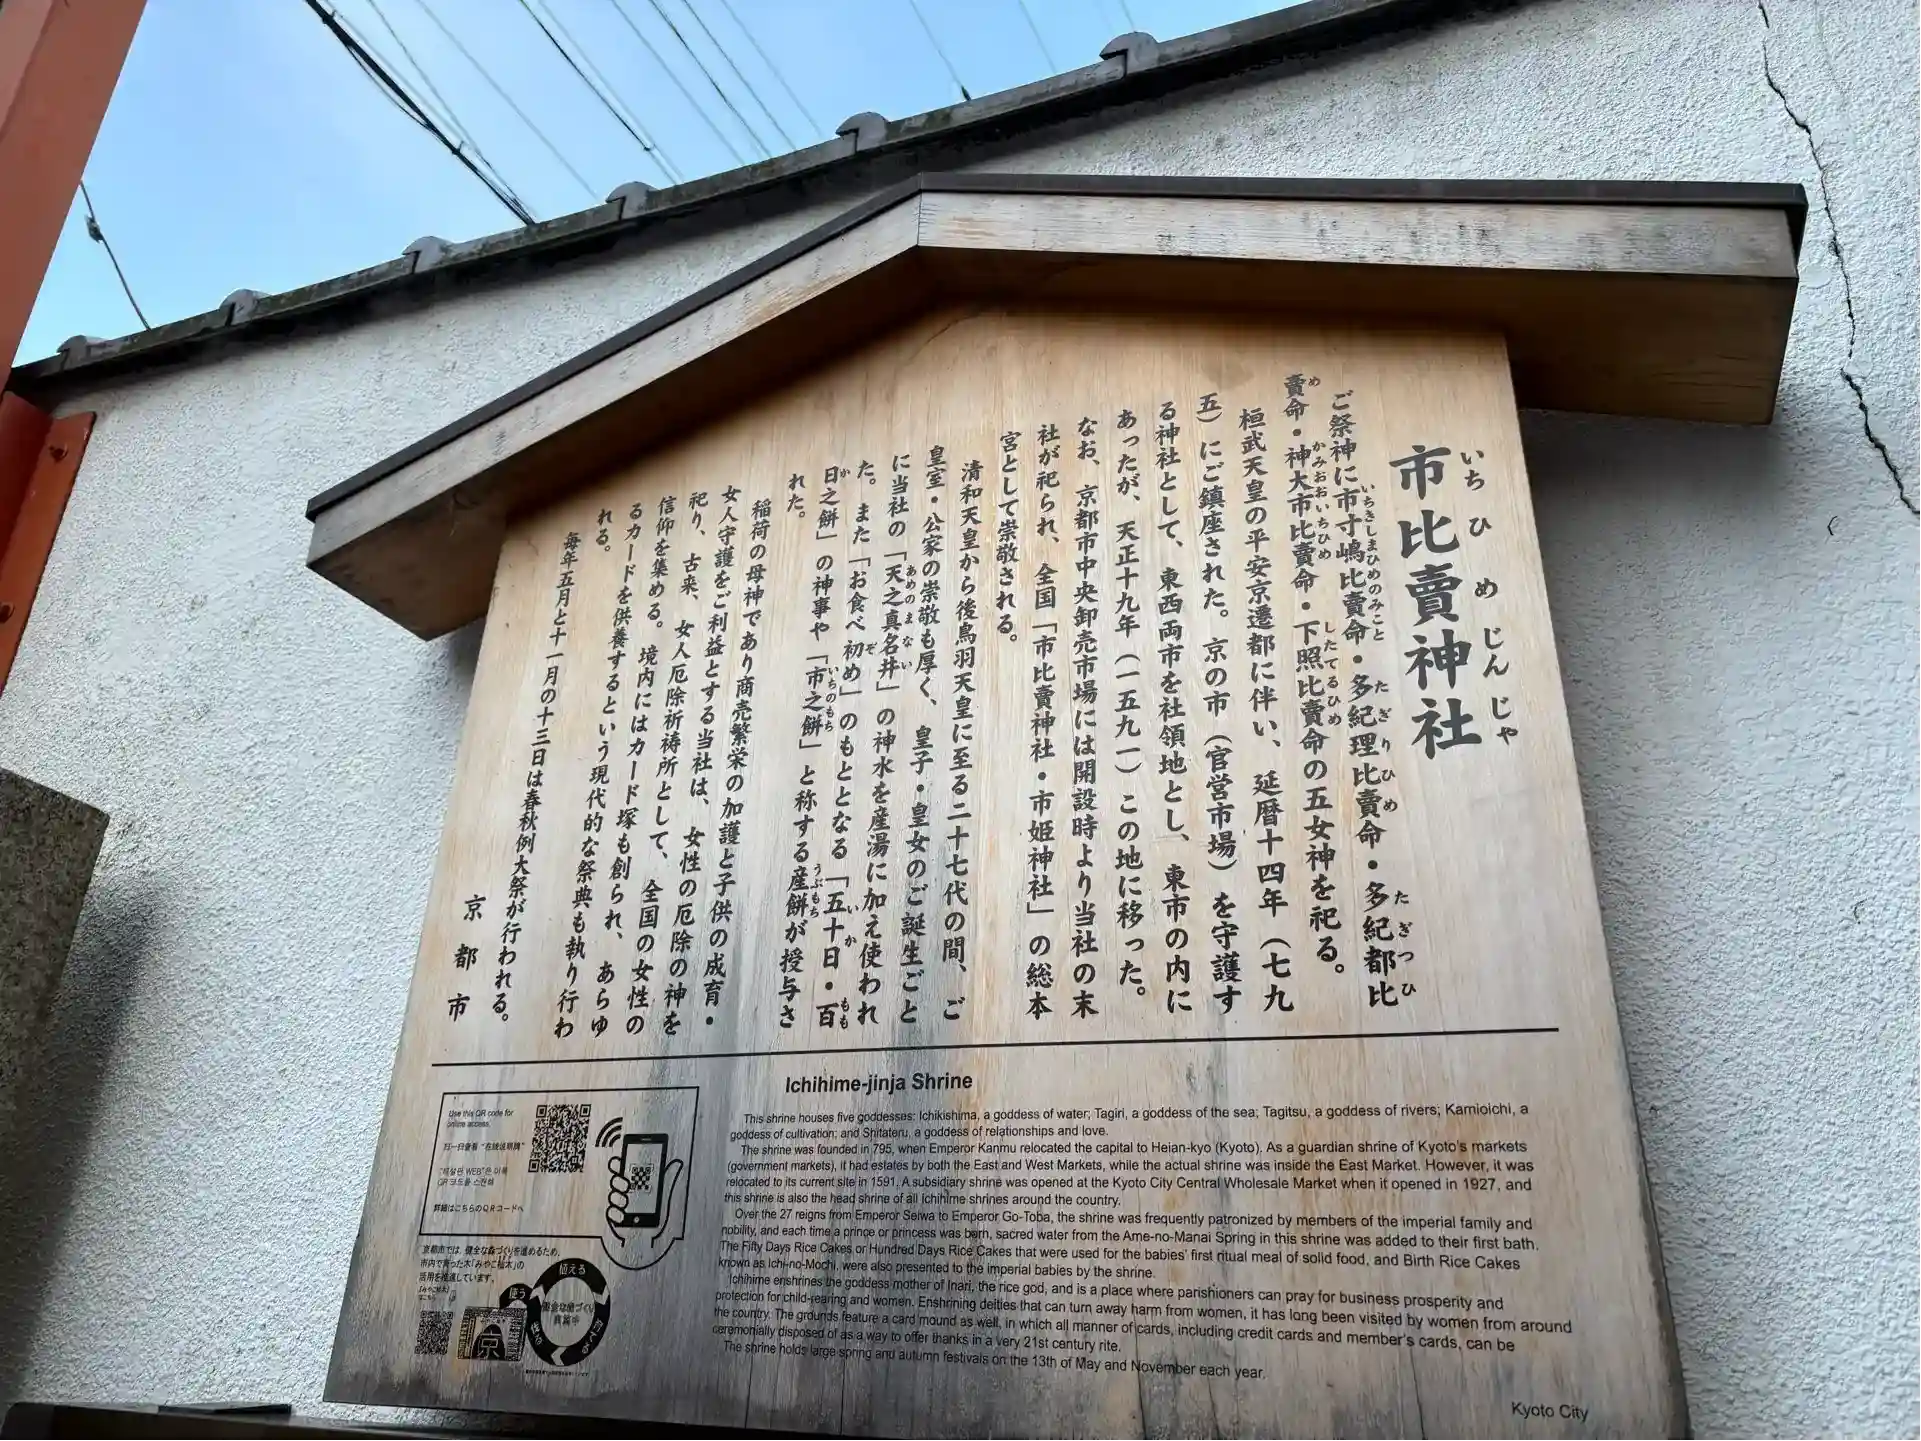 市比賣神社
いちひめじんじゃ
ご祭神に市寸嶋比賣命・多紀理比賣命・多紀都比
いちきしまひめのみこと たぎりひめ たぎつひ
賣命・神大市比賣命・下照比賣命の五女神を祀る。
め かみおおいちひめ したてるひめ
桓武天皇の平安京遷都に伴い、延暦十四年(七九
五)にご鎮座された。京の市(官営市場)を守護す
る神社として、東西両市を社領地とし、東市の内に
あったが、天正十九年(一五九一)この地に移った。
なお、京都市中央卸売市場には開設時より当社の末
社が祀られ、全国「市比賣神社・市姫神社」の総本
宮として崇敬される。
清和天皇から後鳥羽天皇に至る二十七代の間、ご
皇室・公家の崇敬も厚く、皇子・皇女のご誕生ごと
に当社の「天之真名井」の神水を産湯に加え使われ
あめのまない
た。また「お食べ初め」のもととなる「五十日・百
ぞ いか もも
日之餅」の神事や「市之餅」と称する産餅が授与さ
か いちのもち うぶもち
れた。
稲荷の母神であり商売繁栄の加護と子供の成育・
女人守護をご利益とする当社は、女性の厄除の神を
祀り、古来、女人厄除祈祷所として、全国の女性の
信仰を集める。境内にはカード塚も創られ、あらゆ
るカードを供養するという現代的な祭典も執り行わ
れる。
毎年五月と十一月の十三日は春秋例大祭が行われる。
京都市
Ichihime-jinja Shrine
This shrine houses five goddesses: Ichikishima, a goddess of water; Tagiri, a goddess of the sea; Tagitsu, a goddess of rivers; Kamioichi, a
goddess of cultivation; and Shitateru, a goddess of relationships and love.
The shrine was founded in 795, when Emperor Kanmu relocated the capital to Heian-kyo (Kyoto). As a guardian shrine of Kyoto's markets
(government markets), it had estates by both the East and West Markets, while the actual shrine was inside the East Market. However, it was
relocated to its current site in 1591. A subsidiary shrine was opened at the Kyoto City Central Wholesale Market when it opened in 1927, and
this shrine is also the head shrine of all Ichihime shrines around the country.
Over the 27 reigns from Emperor Seiwa to Emperor Go-Toba, the shrine was frequently patronized by members of the imperial family and
nobility, and each time a prince or princess was born, sacred water from the Ame-no-Manai Spring in this shrine was added to their first bath.
The Fifty Days Rice Cakes or Hundred Days Rice Cakes that were used for the babies' first ritual meal of solid food, and Birth Rice Cakes
known as Ichi-no-Mochi, were also presented to the imperial babies by the shrine.
Ichihime enshrines the goddess mother of Inari, the rice god, and is a place where parishioners can pray for business prosperity and
protection for child-rearing and women. Enshrining deities that can turn away harm from women, it has long been visited by women from around
the country. The grounds feature a card mound as well, in which all manner of cards, including credit cards and member's cards, can be
ceremonially disposed of as a way to offer thanks in a very 21st century rite.
The shrine holds large spring and autumn festivals on the 13th of May and November each year.
Kyoto City
Use this QR code for
online access.
扫一扫查看"在线说明牌"
"해설판 WEB"은 이쪽
QR 코드를 스캔해
詳細はこちらのQRコードへ
京都市では、健全な森づくりを進めるため、
市内で育った木「みやこ杣木」の
活用を推進しています。
植える
使う
京